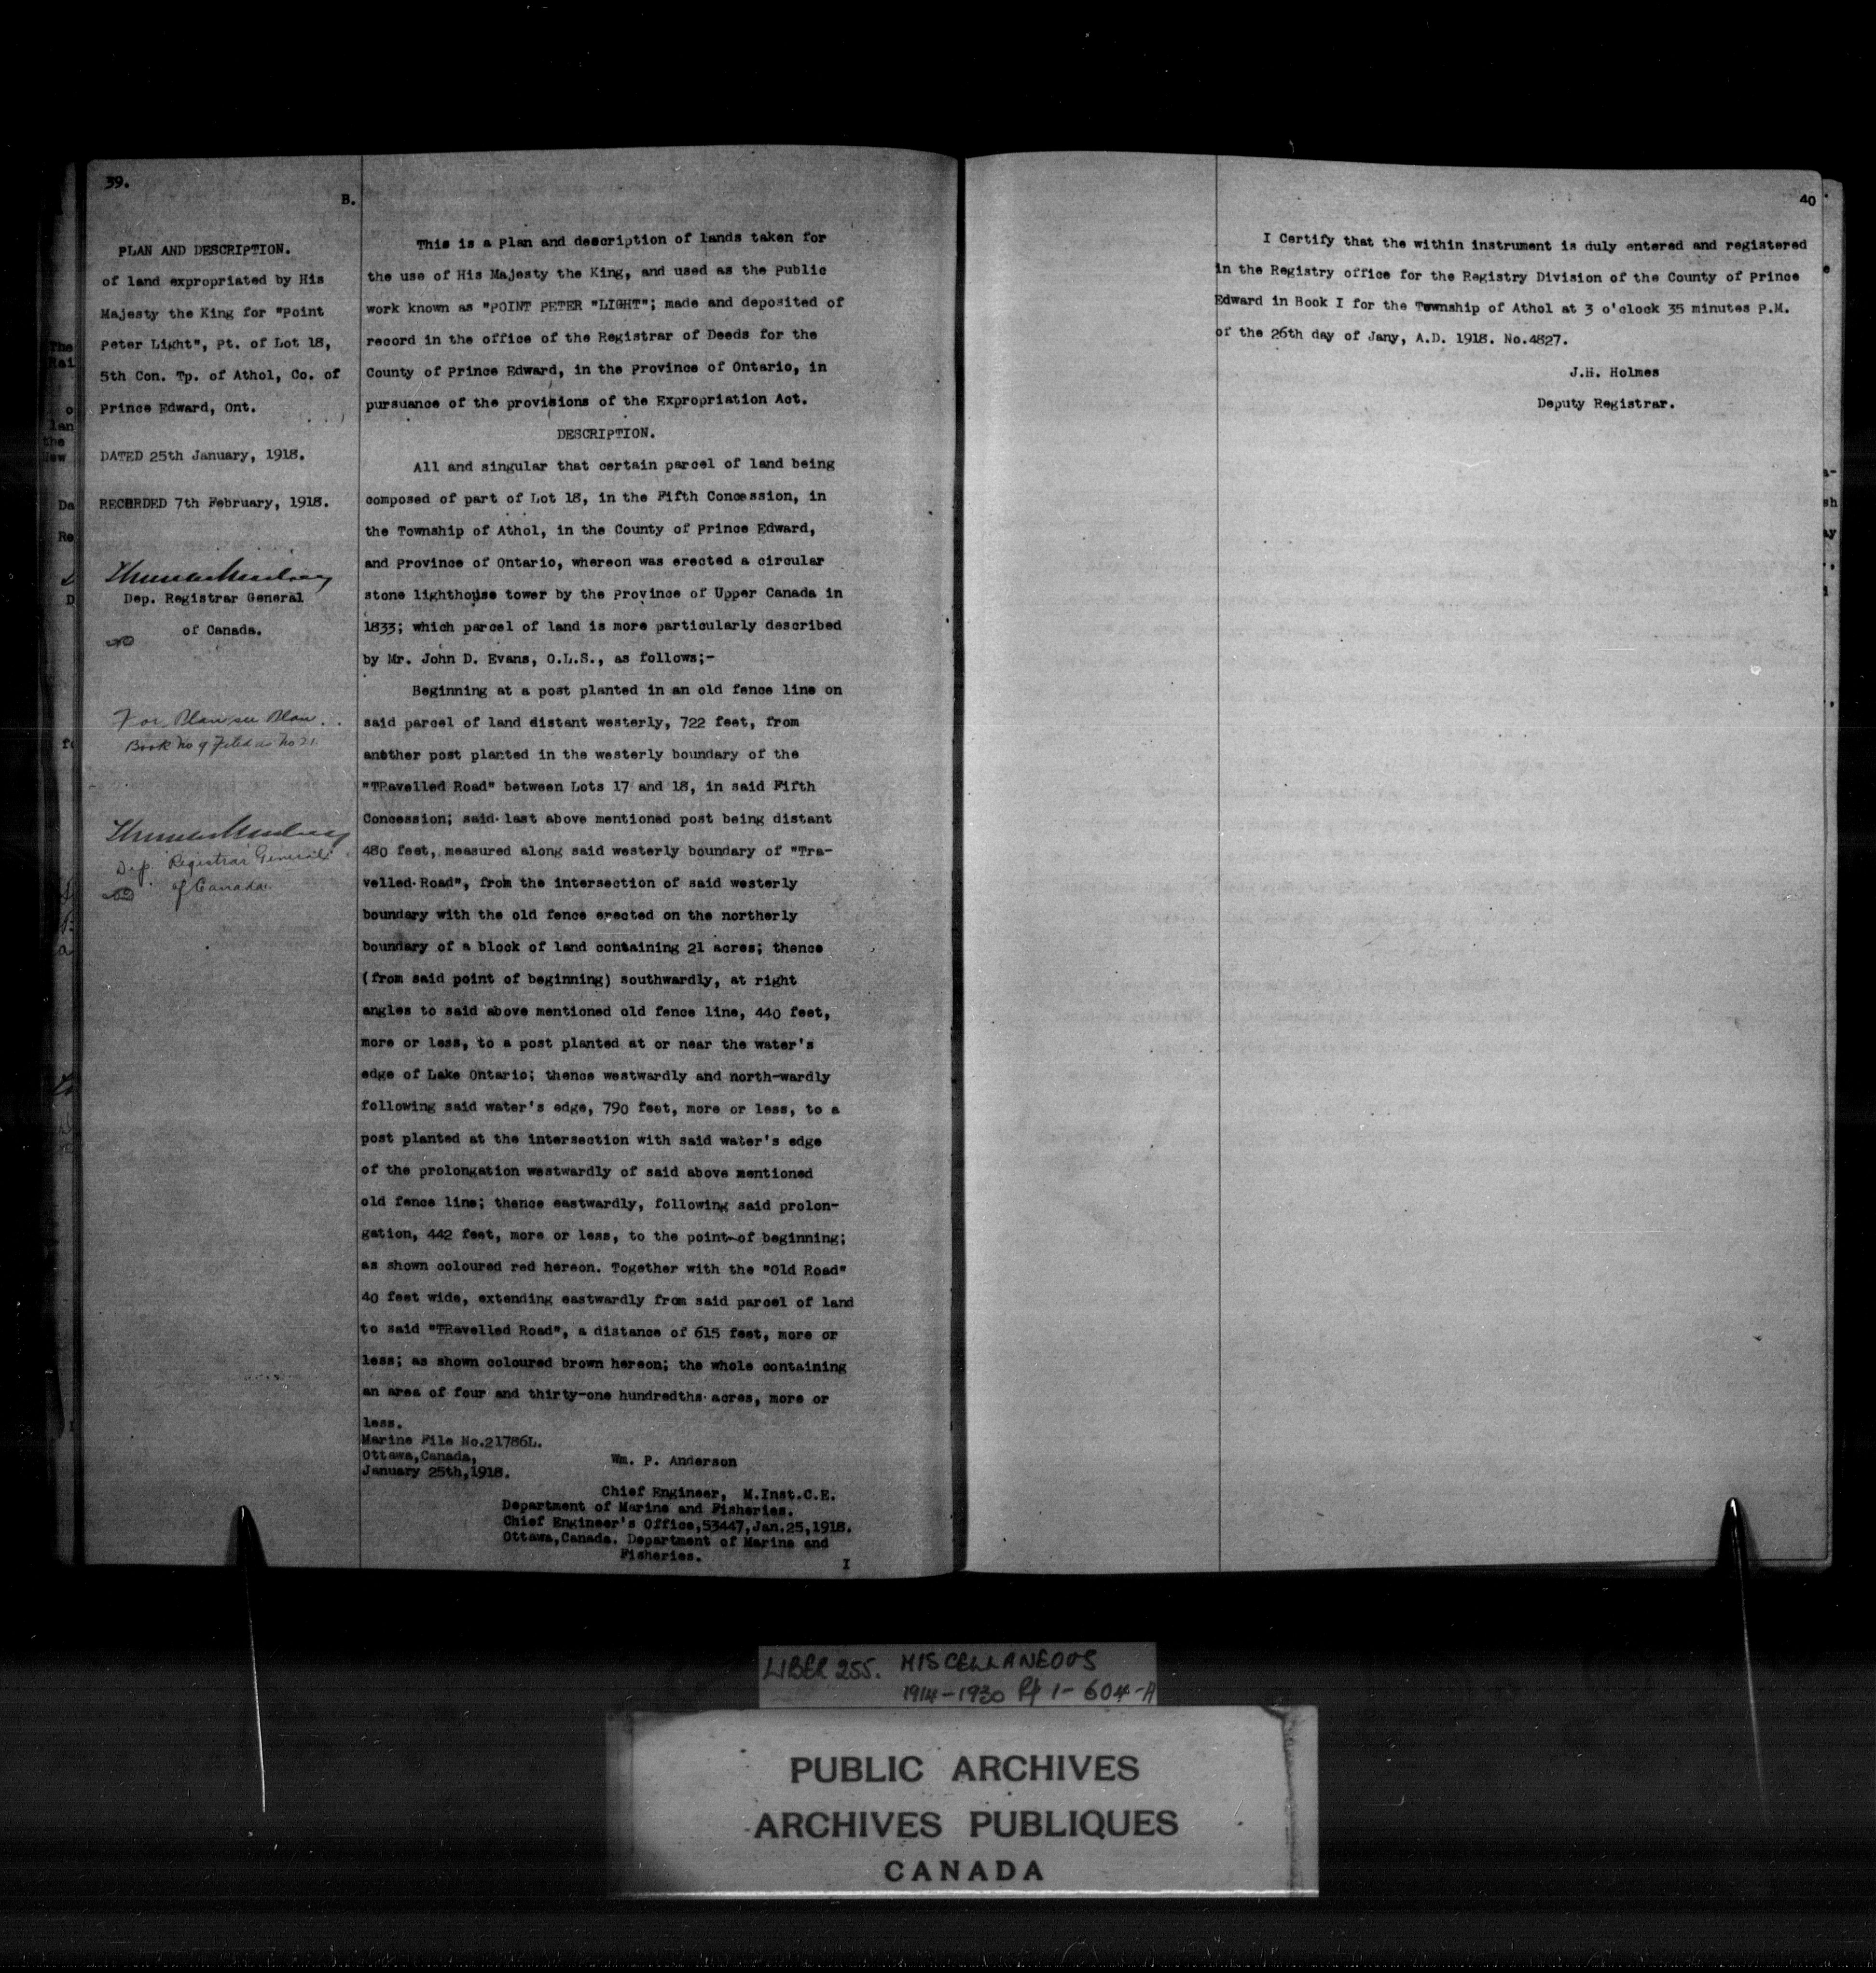 39.
B.
PLAN AND DESCRIPTION.
of land expropriated by His
Majesty the King for "Point
Peter Light", Pt. of Lot 18,
5th Con. Tp. of Athol, Co. of
Prince Edward, Ont.
DATED 25th January, 1918.
RECORDED 7th February, 1918.
Dep. Registrar General
of Canada.
For Plan see Plan
Book No 9 Filed as No 21
Dep. Registrar General
of Canada.
This is a Plan and description of lands taken for
the use of His Majesty the King, and used as the Public
work known as "POINT PETER "LIGHT"; made and deposited of
record in the office of the Registrar of Deeds for the
County of Prince Edward, in the Province of Ontario, in
pursuance of the provisions of the Expropriation Act.
DESCRIPTION.
All and singular that certain parcel of land being
composed of part of Lot 18, in the Fifth Concession, in
the Township of Athol, in the County of Prince Edward,
and Province of Ontario, whereon was erected a circular
stone lighthouse tower by the Province of Upper Canada in
1833; which parcel of land is more particularly described
by Mr. John D. Evans, O.L.S., as follows;-
Beginning at a post planted in an old fence line on
said parcel of land distant westerly, 722 feet, from
another post planted in the westerly boundary of the
"TRavelled Road" between Lots 17 and 18, in said Fifth
Concession; said last above mentioned post being distant
480 feet, measured along said westerly boundary of "Tra-
velled Road", from the intersection of said westerly
boundary with the old fence erected on the northerly
boundary of a block of land containing 21 acres; thence
(from said point of beginning) southwardly, at right
angles to said above mentioned old fence line, 440 feet,
more or less, to a post planted at or near the water's
edge of Lake Ontario; thence westwardly and north-wardly
following said water's edge, 790 feet, more or less, to a
post planted at the intersection with said water's edge
of the prolongation westwardly of said above mentioned
old fence line; thence eastwardly, following said prolon-
gation, 442 feet, more or less, to the point of beginning;
as shown coloured red hereon. Together with the "Old Road"
40 feet wide, extending eastwardly from said parcel of land
to said "TRavelled Road", a distance of 615 feet, more or
less; as shown coloured brown hereon; the whole containing
an area of four and thirty-one hundredths acres, more or
less.
Marine File No.21786L.
Ottawa,Canada,
January 25th,1918.
Wm. P. Anderson
Chief Engineer, M.Inst.C.E.
Department of Marine and Fisheries.
Chief Engineer's Office,53447,Jan.25,1918.
Ottawa,Canada. Department of Marine and
Fisheries.
I
40
I Certify that the within instrument is duly entered and registered
in the Registry office for the Registry Division of the County of Prince
Edward in Book I for the Township of Athol at 3 o'clock 35 minutes P.M.
of the 26th day of Jany, A.D. 1918. No.4827.
J.H. Holmes
Deputy Registrar.
LIBER 255. MISCELLANEOUS
1914-1930 Pf 1-604-A
PUBLIC ARCHIVES
ARCHIVES PUBLIQUES
CANADA